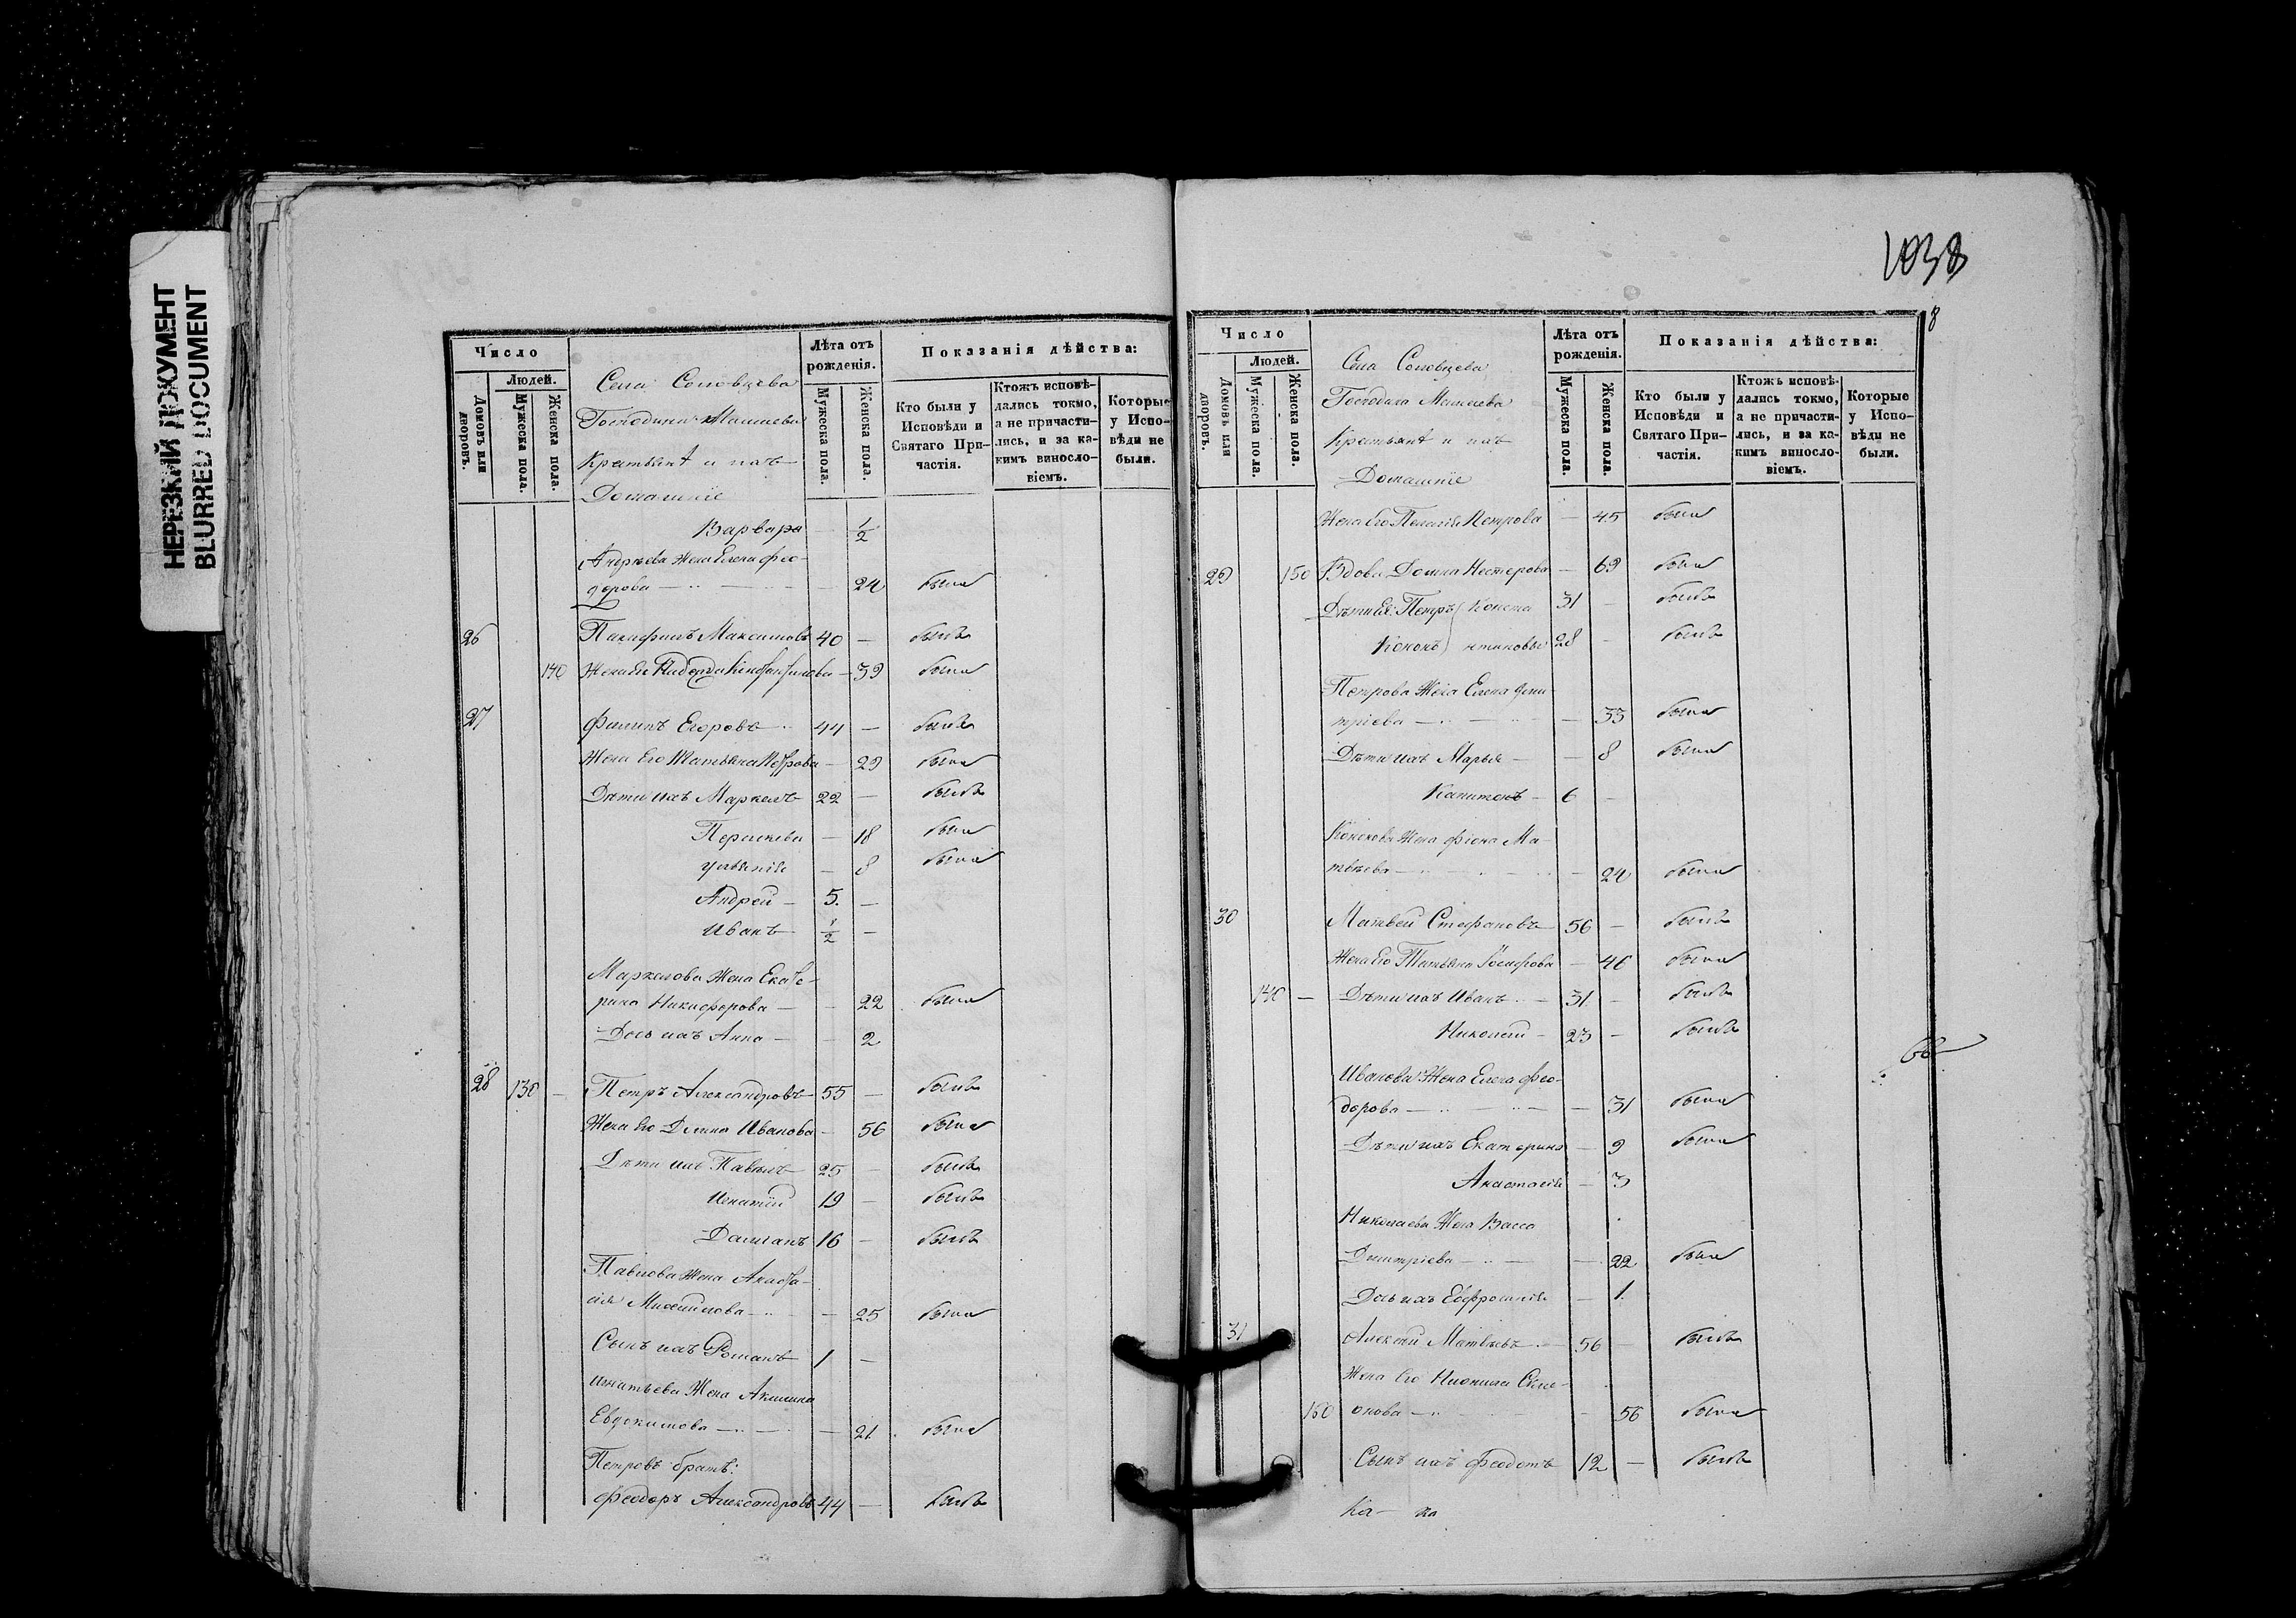 НЕРЕЗКИЙ ДОКУМЕНТ
BLURRED DOCUMENT
Число
Людей.
Домовъ или дворовъ.
Мужеска пола.
Женска пола.
Села Соловцева
Господина
Крестьянѣ и ихъ
Домашніе
Лѣта отъ рожденія.
Мужеска пола.
Женска пола.
Показанія дѣйства:
Кто были у Исповѣди и Святаго Причастія.
Ктожъ исповѣдались токмо, а не причастились, и за какимъ винословіемъ.
Которые у Исповѣди не были.
Варвара — 1/2
Андреева Жена Елена Фео-
дорова — 24 была
26 Максимовъ 40 — былъ
140 Жена Его 39 была
27 Филипъ Егоровъ 44 — былъ
Жена Его Татьяна Петрова — 29 была
Дѣти ихъ Маркелъ 22 — былъ
— 18 была
— 8 была
Андрей — 5. —
Иванъ 1/2 —
Маркелова Жена Екате-
рина Никифорова — 22 была
Дочь ихъ Анна — 2
28 130 — Петръ Александровъ 55 — былъ
Жена Его Домна Иванова — 56 была
Дѣти ихъ Павелъ 25 — былъ
Игнатій 19 — былъ
Даміанъ 16 — былъ
Павлова Жена Анаста-
сія Михайлова — 25 была
Сынъ ихъ Романъ 1 —
Игнатьева Жена Акилина
Евдокимова — 21. была
Петровъ братъ:
Феодоръ Александровъ 44 — былъ
1038
8
Число
Людей.
Домовъ или дворовъ.
Мужеска пола.
Женска пола.
Села Соловцева
Господина
Крестьянѣ и ихъ
Домашніе
Лѣта отъ рожденія.
Мужеска пола.
Женска пола.
Показанія дѣйства:
Кто были у Исповѣди и Святаго Причастія.
Ктожъ исповѣдались токмо, а не причастились, и за какимъ винословіемъ.
Которые у Исповѣди не были.
Жена Его Пелагія Петрова — 45 была
29 150 Вдова Домна Нестерова — 69 была
Дѣти Ея: Петръ Конста 31 — былъ
Кононъ нтиновы 28 — былъ
Петрова Жена Елена Дми-
тріева — 33 была
Дѣти ихъ Марья — 8 была
Капитонъ — 6 —
Кононова Жена Фіона Ма-
твѣева — 24 была
30 Матвей Стефановъ 56 — былъ
Жена Его Татьяна Іосифова — 46 была
140 — Дѣти ихъ Иванъ — 31 — былъ
Николай — 23 — былъ
Иванова Жена Елена Фео-
дорова — 31 была
Дѣти ихъ Екатерина — 9 была
Анастасія — 3
Николаева Жена Васса
Дмитріева — 22 была
Дочь ихъ Евфросинія — 1.
31 Алексѣй Матвѣевъ 56 — былъ
Жена Его Неонила Симе-
160 онова — 56 была
Сынъ ихъ Феодотъ 12 — былъ